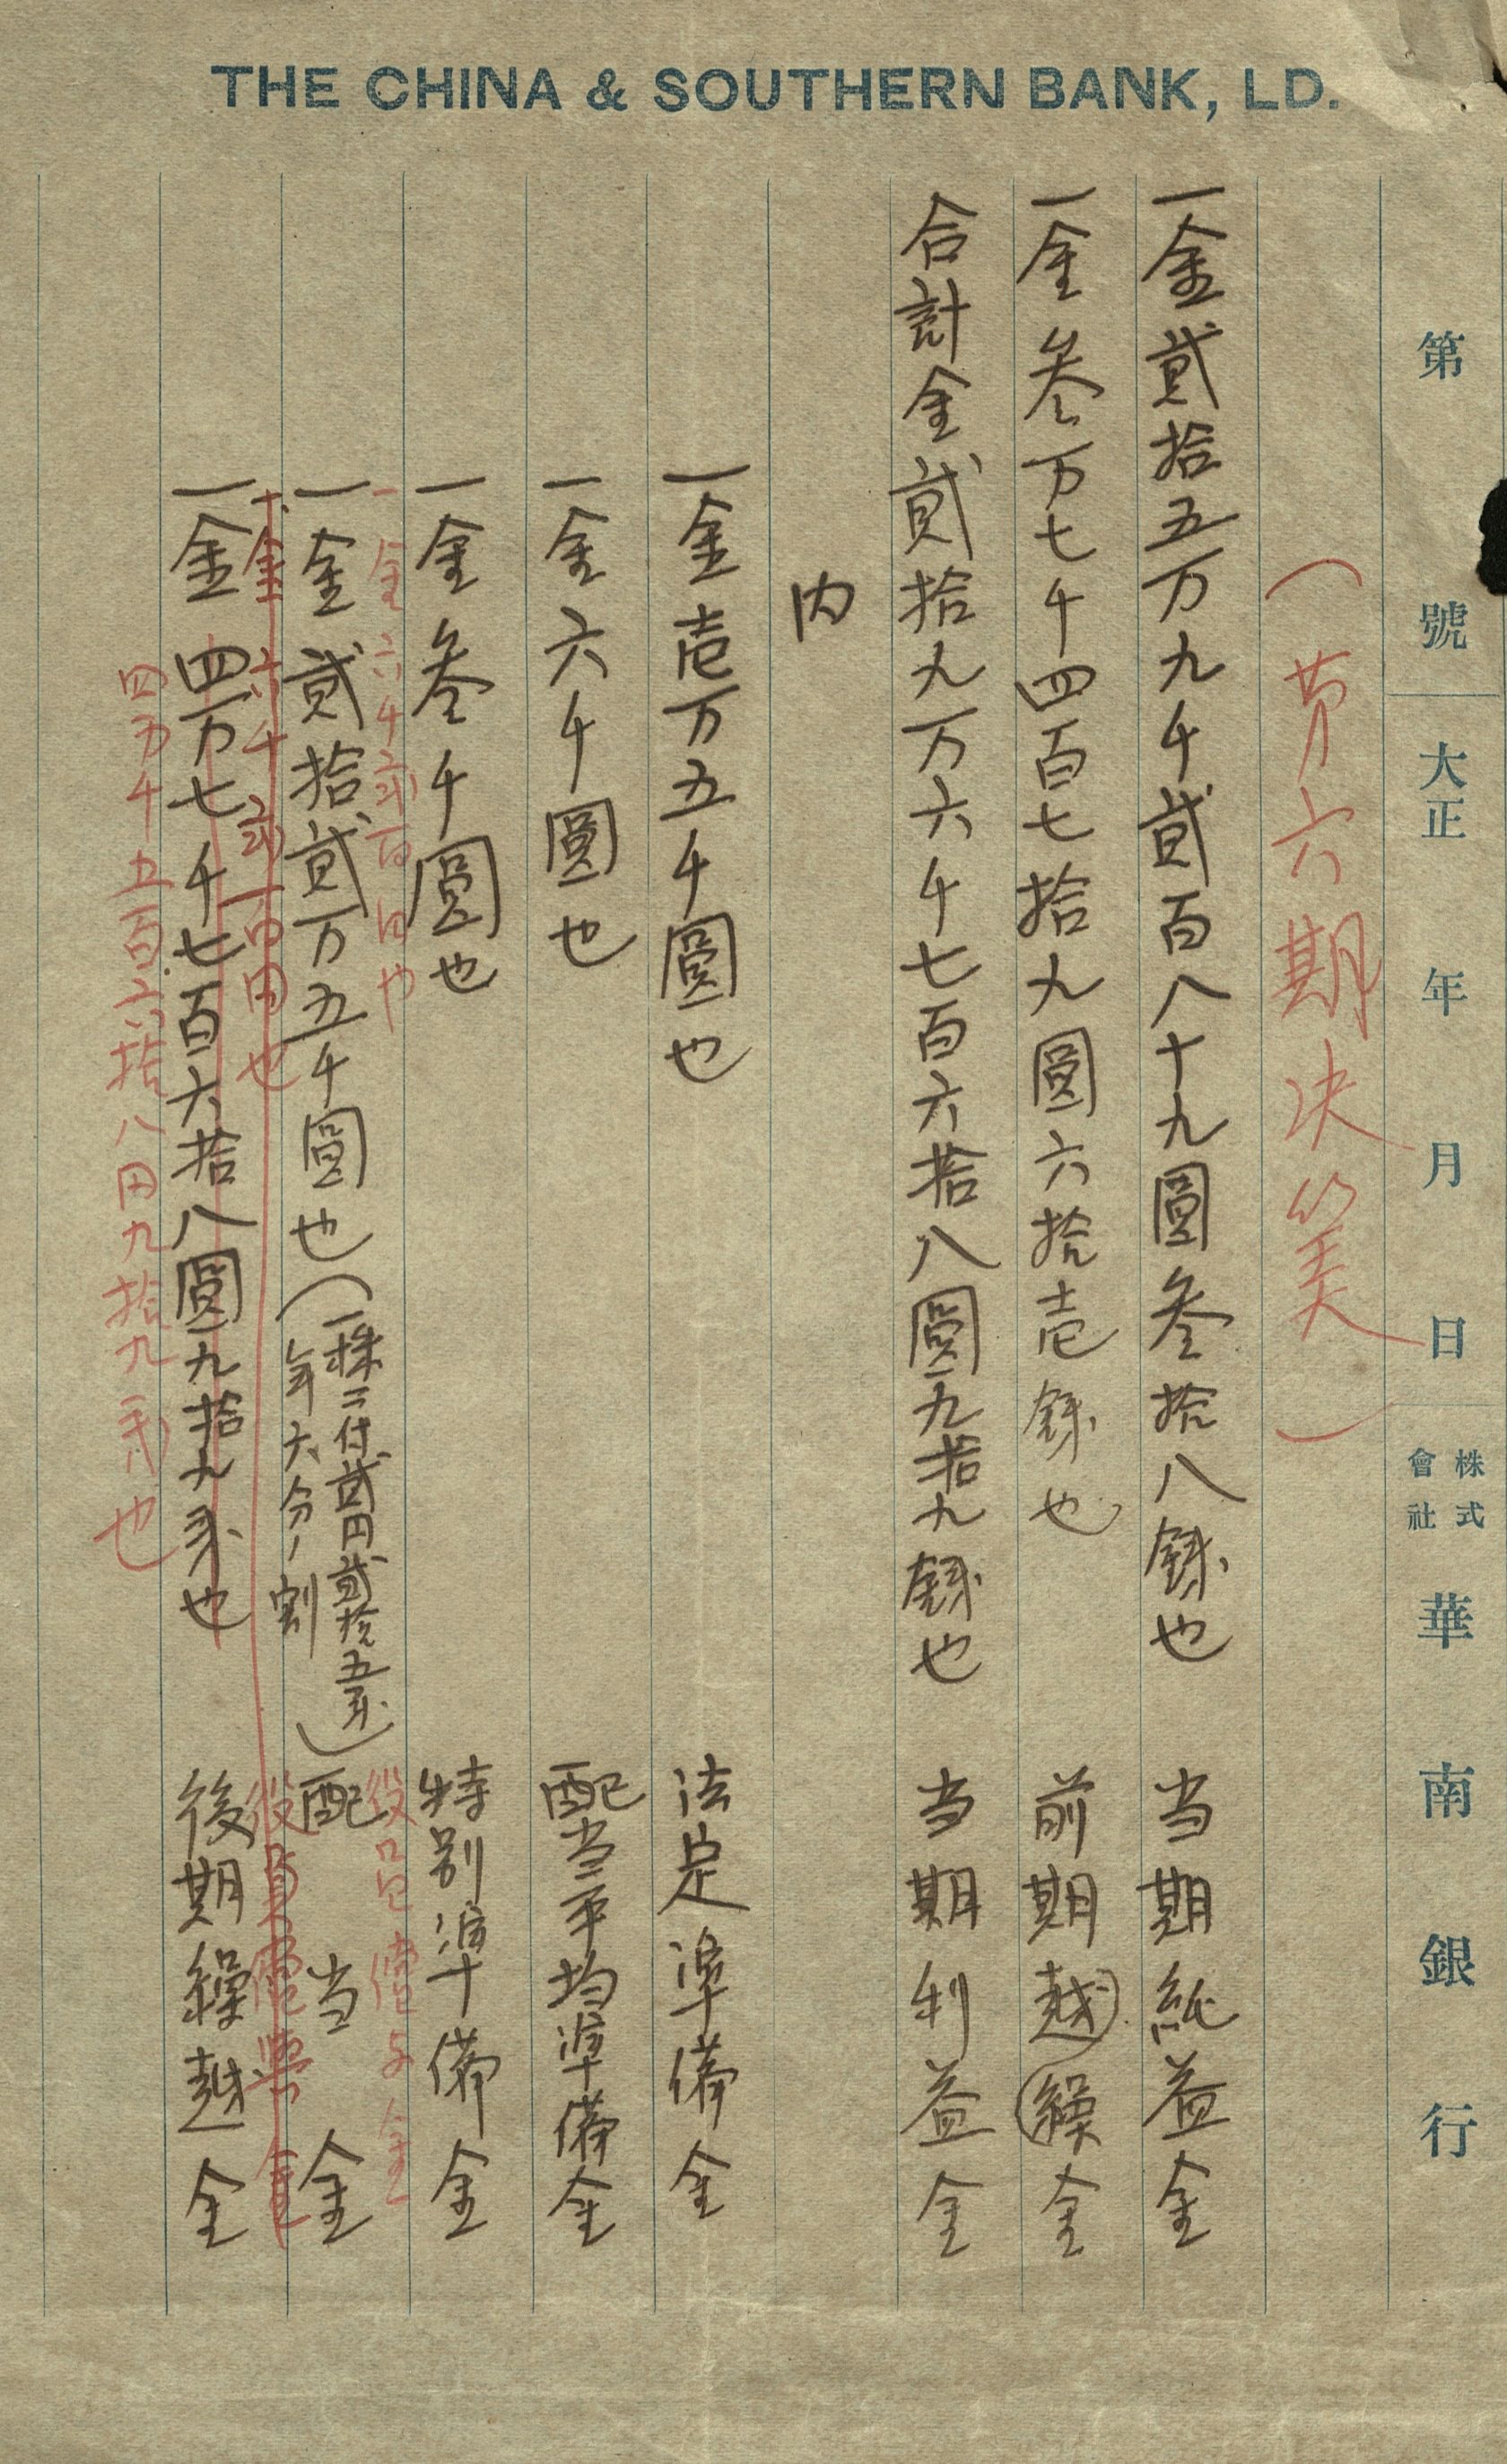 THE CHINA & SOUTHERN BANK, LD.
第 號 大正 年 月 日 株式會社 華南銀行
(第六期决算)
一金貳拾五万九千貳百八十九圓叁拾八錢也 当期純益金
一金叁万七千四百七拾九圓六拾壱錢也 前期越繰金
合計金貳拾九万六千七百六拾八圓九拾九錢也 当期利益金
内
一金壱万五千圓也 法定準備金
一金六千圓也 配当平均準備金
一金叁千圓也 特別準備金
一金六千弐百円也 役員賞与金
一金貳拾貳万五千圓也(一株ニ付貳円貳拾五戋 年六分ノ割) 配当金
一金六千弐百円也 役員賞與金
一金四万七千七百六拾八圓九拾九戋也 後期繰越金
四万千五百六拾八円九拾九戋也